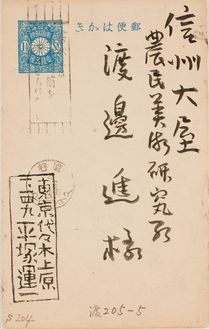 郵便はかき
信州大屋
農民美術研究所
渡邊進様
東京代々木上原
平塚運一
渡205-5
S 204